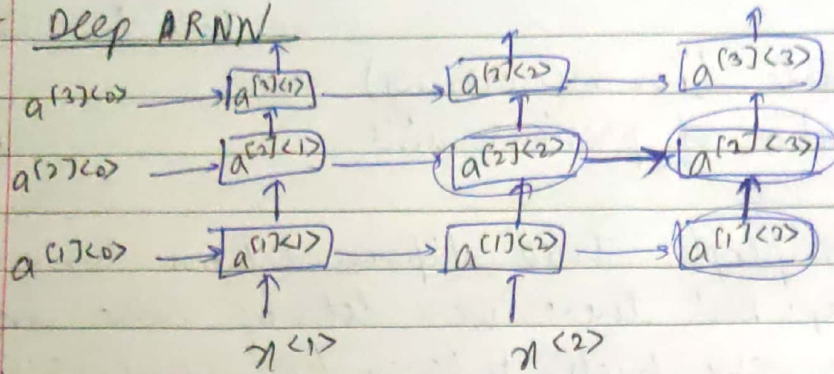 Deep RNN
a[3]<0> a[3]<1> a[3]<2> a[3]<3>
a[2]<0> a[2]<1> a[2]<2> a[2]<3>
a[1]<0> a[1]<1> a[1]<2> a[1]<3>
x<1> x<2>